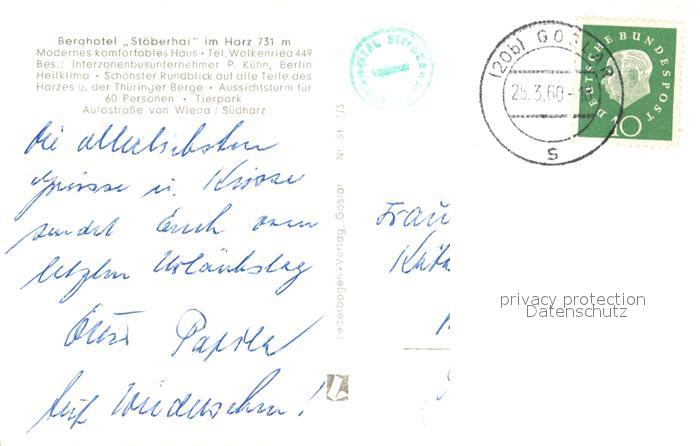 Berghotel „Stöberhai" im Harz 731 m
Modernes komfortables Haus • Tel. Walkenried 449
Bes.: Interzonenbusunternehmer P. Kühn, Berlin
Heilklima • Schönster Rundblick auf alle Teile des
Harzes u. der Thüringer Berge • Aussichtsturm für
60 Personen • Tierpark
Autostraße von Wieda / Südharz
Die allerliebsten
Grüsse u. Küsse
sendet Euch vom
letzten Urlaubstag
Euer
Auf Wiedersehen!
Lederbogen-Verlag, Goslar Nr. St. 73
(20b) GOSLAR
3.60
s
DEUTSCHE BUNDESPOST
10
Frau
privacy protection
Datenschutz